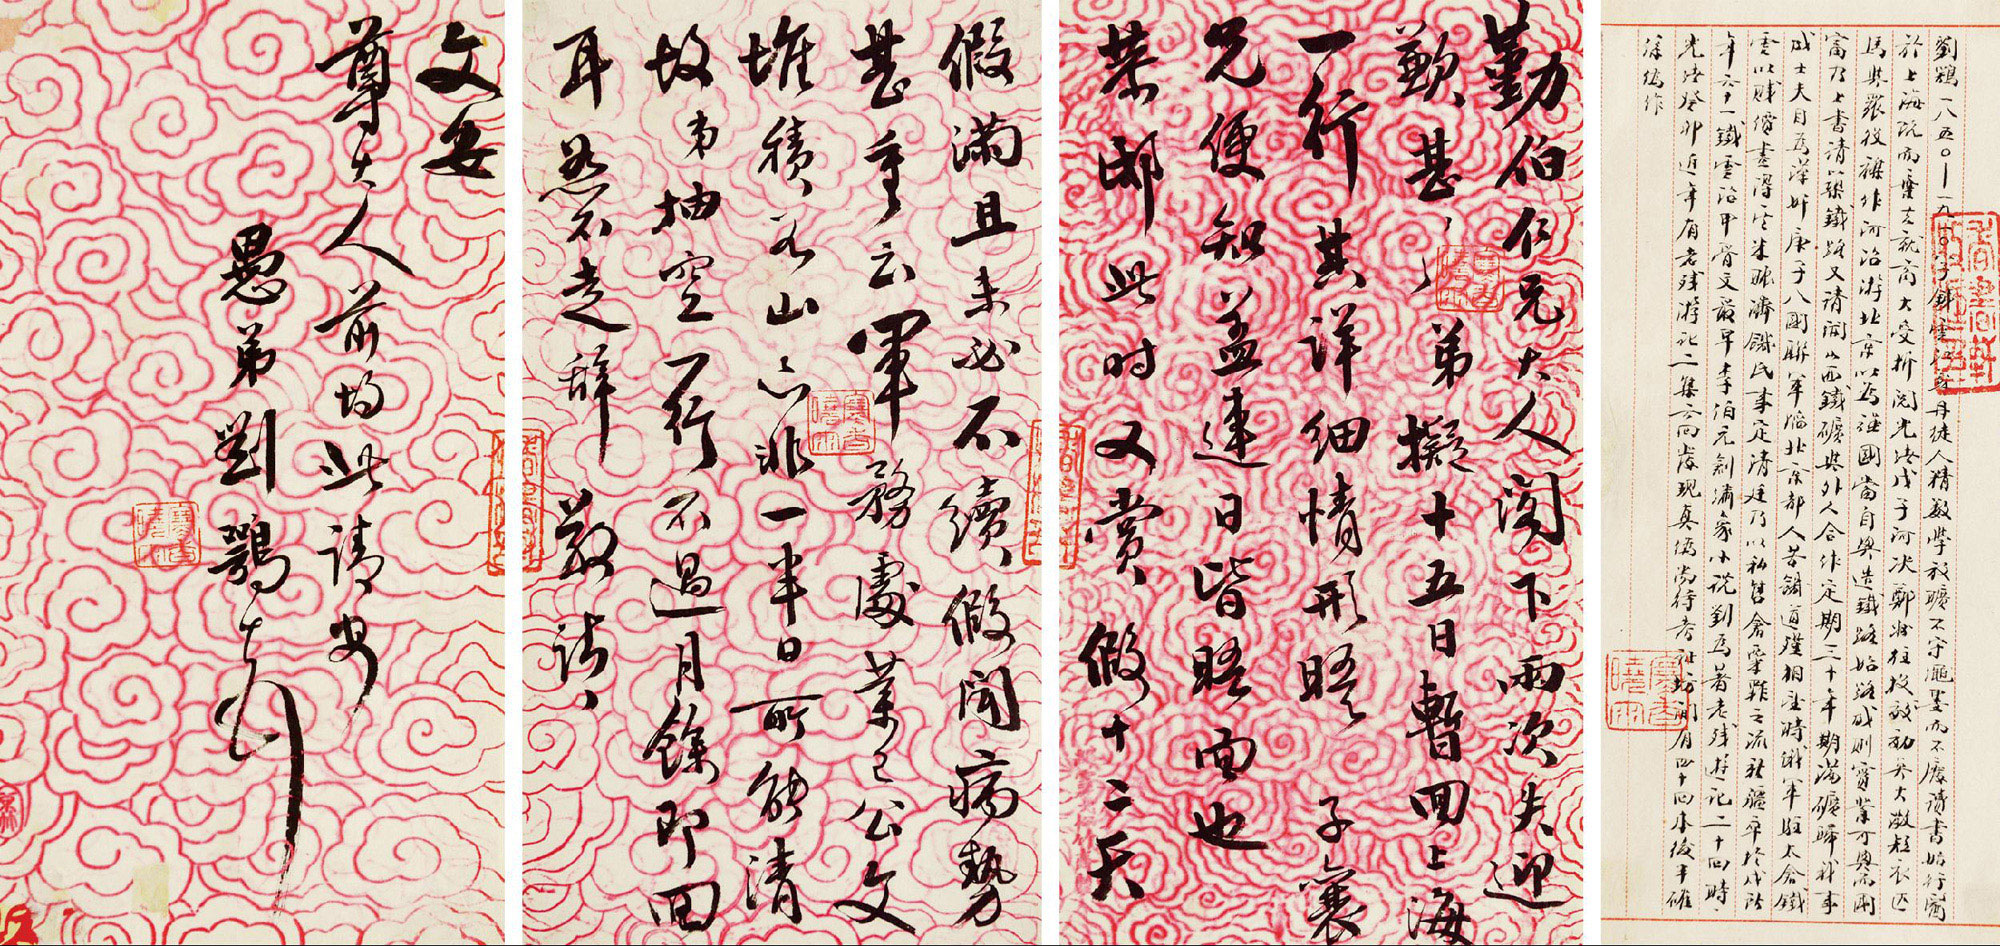 劉鶚一八五〇—一九一〇字鐵雲江蘇丹徒人精數學放曠不守繩墨而不廢讀書始行醫
於上海旋而棄去就商大受折閱光緒戊子河決鄭州往投效初吳大澂短衣匹
馬與裴役襍作河治游北京以為強國當自興造鐵路始路成則實業可興而國
富乃上書請築鐵路又請開山西鐵礦與外人合作定期三十年期滿礦歸我事
成士夫目為漢奸庚子八國聯軍臨北京都人苦饑道殣相望時俄軍駐太倉鐵
雲以賤價盡得其米賑濟饑民事定清廷乃以私售倉粟罪之流新疆卒於戍所
年六十一鐵雲治甲骨文最早李伯元創繡像小說劉為著老殘遊記二十回時
光緒癸卯近年有老殘游記二集云尚發現真偽尚待考証坊間有四十回本後半確
係偽作
勤伯仁兄大人閣下兩次失迎
歉甚〻弟擬十五日暫回上海
一行其詳細情形晤子襄
兄便知蓋連日皆晤面也
榮邸此時又賞假十二天
假滿且未必不續假聞病勢
甚重云軍務處業已公文
堆積如山亦非一半日所能清
故弟抽空一行不過月餘即回
耳恕不走辭敬請
文安
尊大人前均此請安
愚弟劉鶚頓首